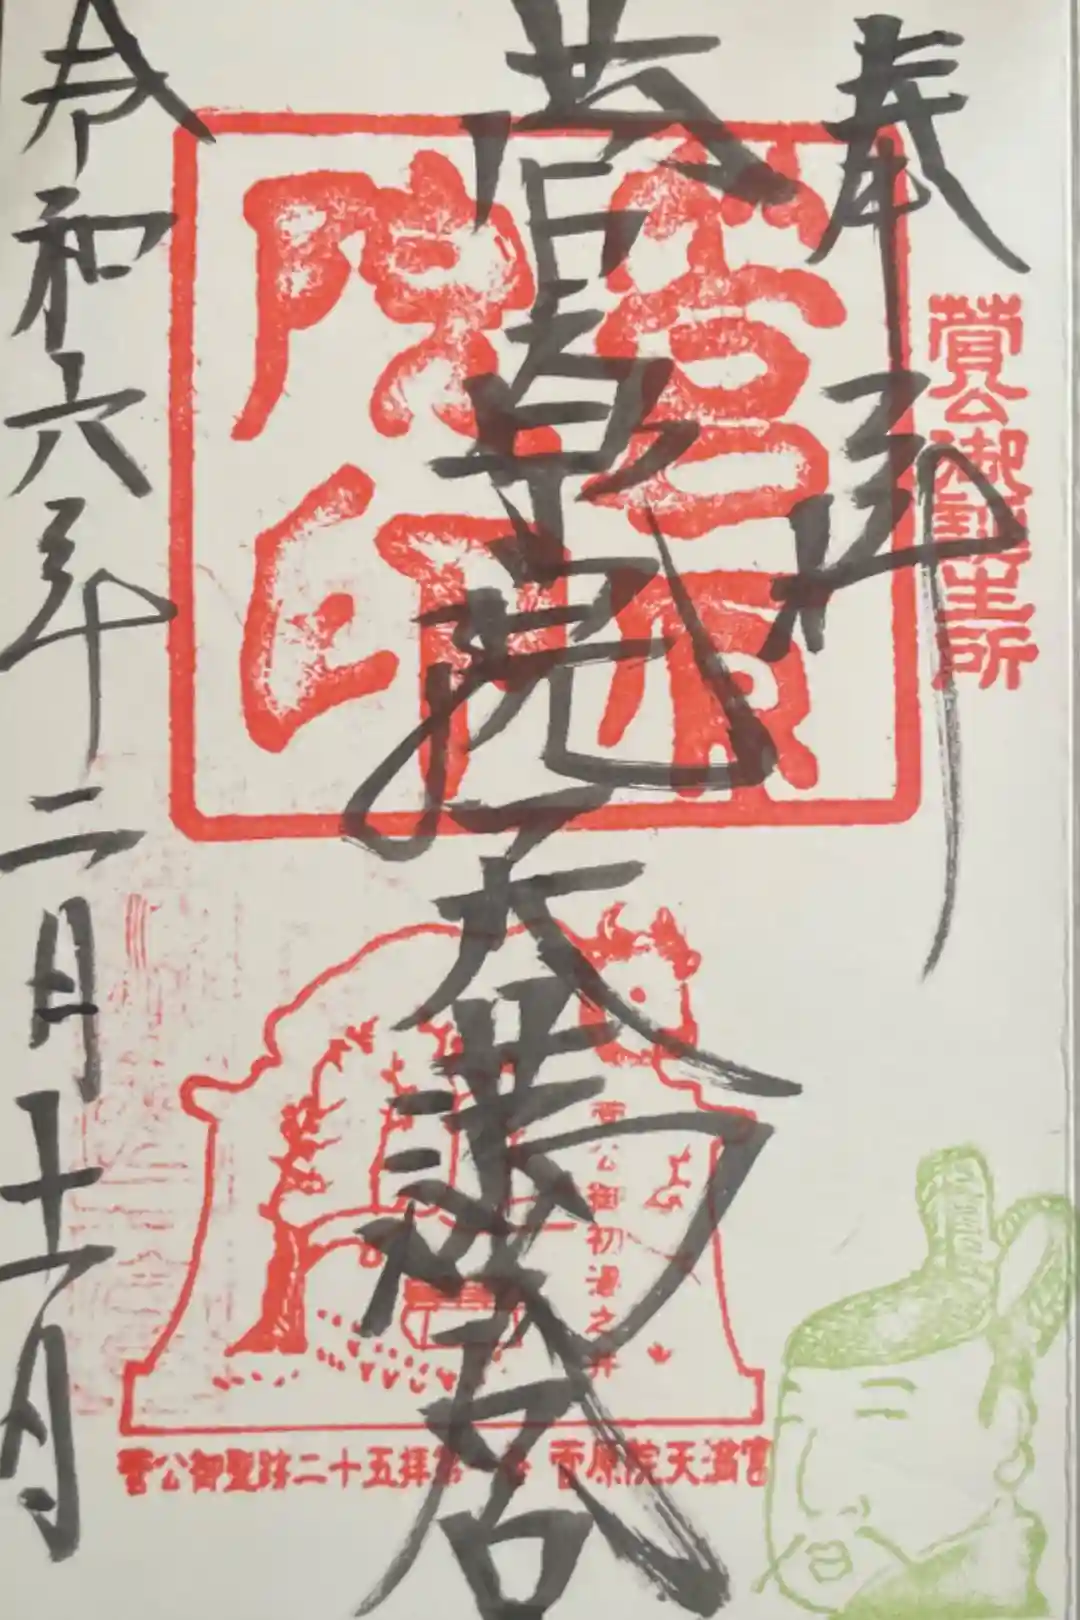 奉拝
菅公御誕生所
菅原院天満宮
菅原院印
令和六年二月十一日
菅公御初湯之井
菅公御聖跡二十五拝第一番 菅原院天満宮